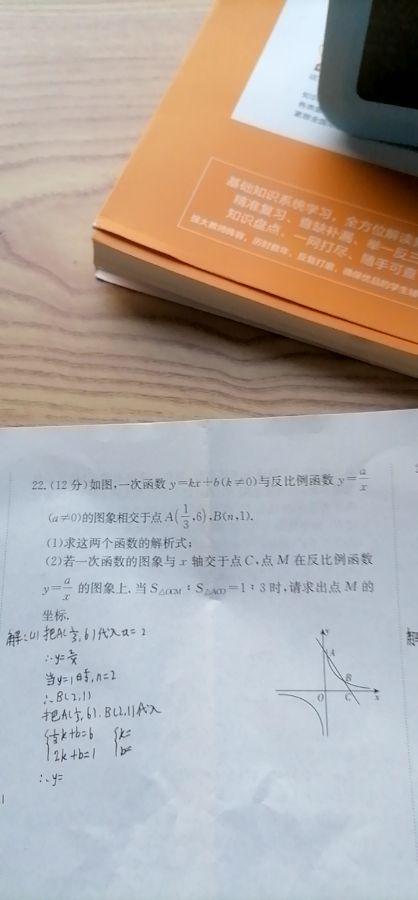 基础知识系统学习、全方位解读
精准复习、查缺补漏、举一反三
知识盘点、一网打尽、随手可
22.(12分)如图,一次函数 y=kx+b(k≠0)与反比例函数 y=a/x
(a≠0)的图象相交于点 A(1/3,6),B(n,1).
(1)求这两个函数的解析式;
(2)若一次函数的图象与 x 轴交于点 C,点 M 在反比例函数
y=a/x 的图象上,当 S△OCM∶S△ACO=1∶3 时,请求出点 M 的
坐标.
解:(1) 把A(1/3,6)代入 a=2
∴y=2/x
当y=1时,n=2
∴B(2,1)
把A(1/3,6).B(2,1)代入
{1/3k+b=6 {k=
2k+b=1 b=
∴y=
y
A
B
O
C
x